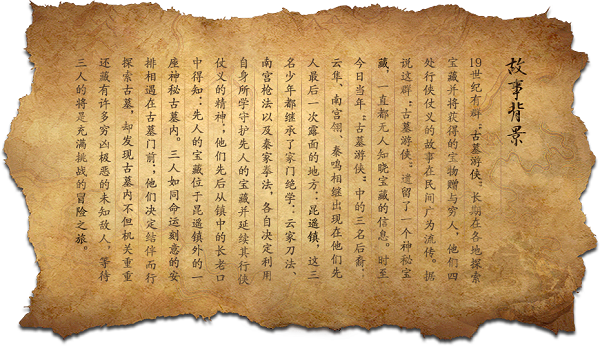 故事背景
19世纪有群“古墓游侠”长期在各地探索
宝藏并将获得的宝物赠与穷人，他们四
处行侠仗义的故事在民间广为流传。据
说这群“古墓游侠”遗留了一个神秘宝
藏，一直都无人知晓宝藏的信息。时至
今日当年“古墓游侠”中的三名后裔：
云隼、南宫翎、秦鸣相继出现在他们先
人最后一次露面的地方：昆遥镇，这三
名少年都继承了家门绝学：云家刀法、
南宫枪法以及秦家拳法，各自决定利用
自身所学守护先人的宝藏并延续其行侠
仗义的精神，他们先后从镇中的长老口
中得知：先人的宝藏位于昆遥镇外的一
座神秘古墓内。三人如同命运刻意的安
排相遇在古墓门前，他们决定结伴而行
探索古墓，却发现古墓内不但机关重重
还藏有许多穷凶极恶的未知敌人，等待
三人的将是充满挑战的冒险之旅。